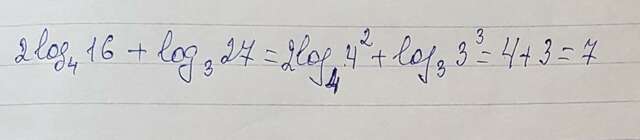 2log₄16 + log₃27 = 2log₄4² + log₃3³ = 4+3 = 7